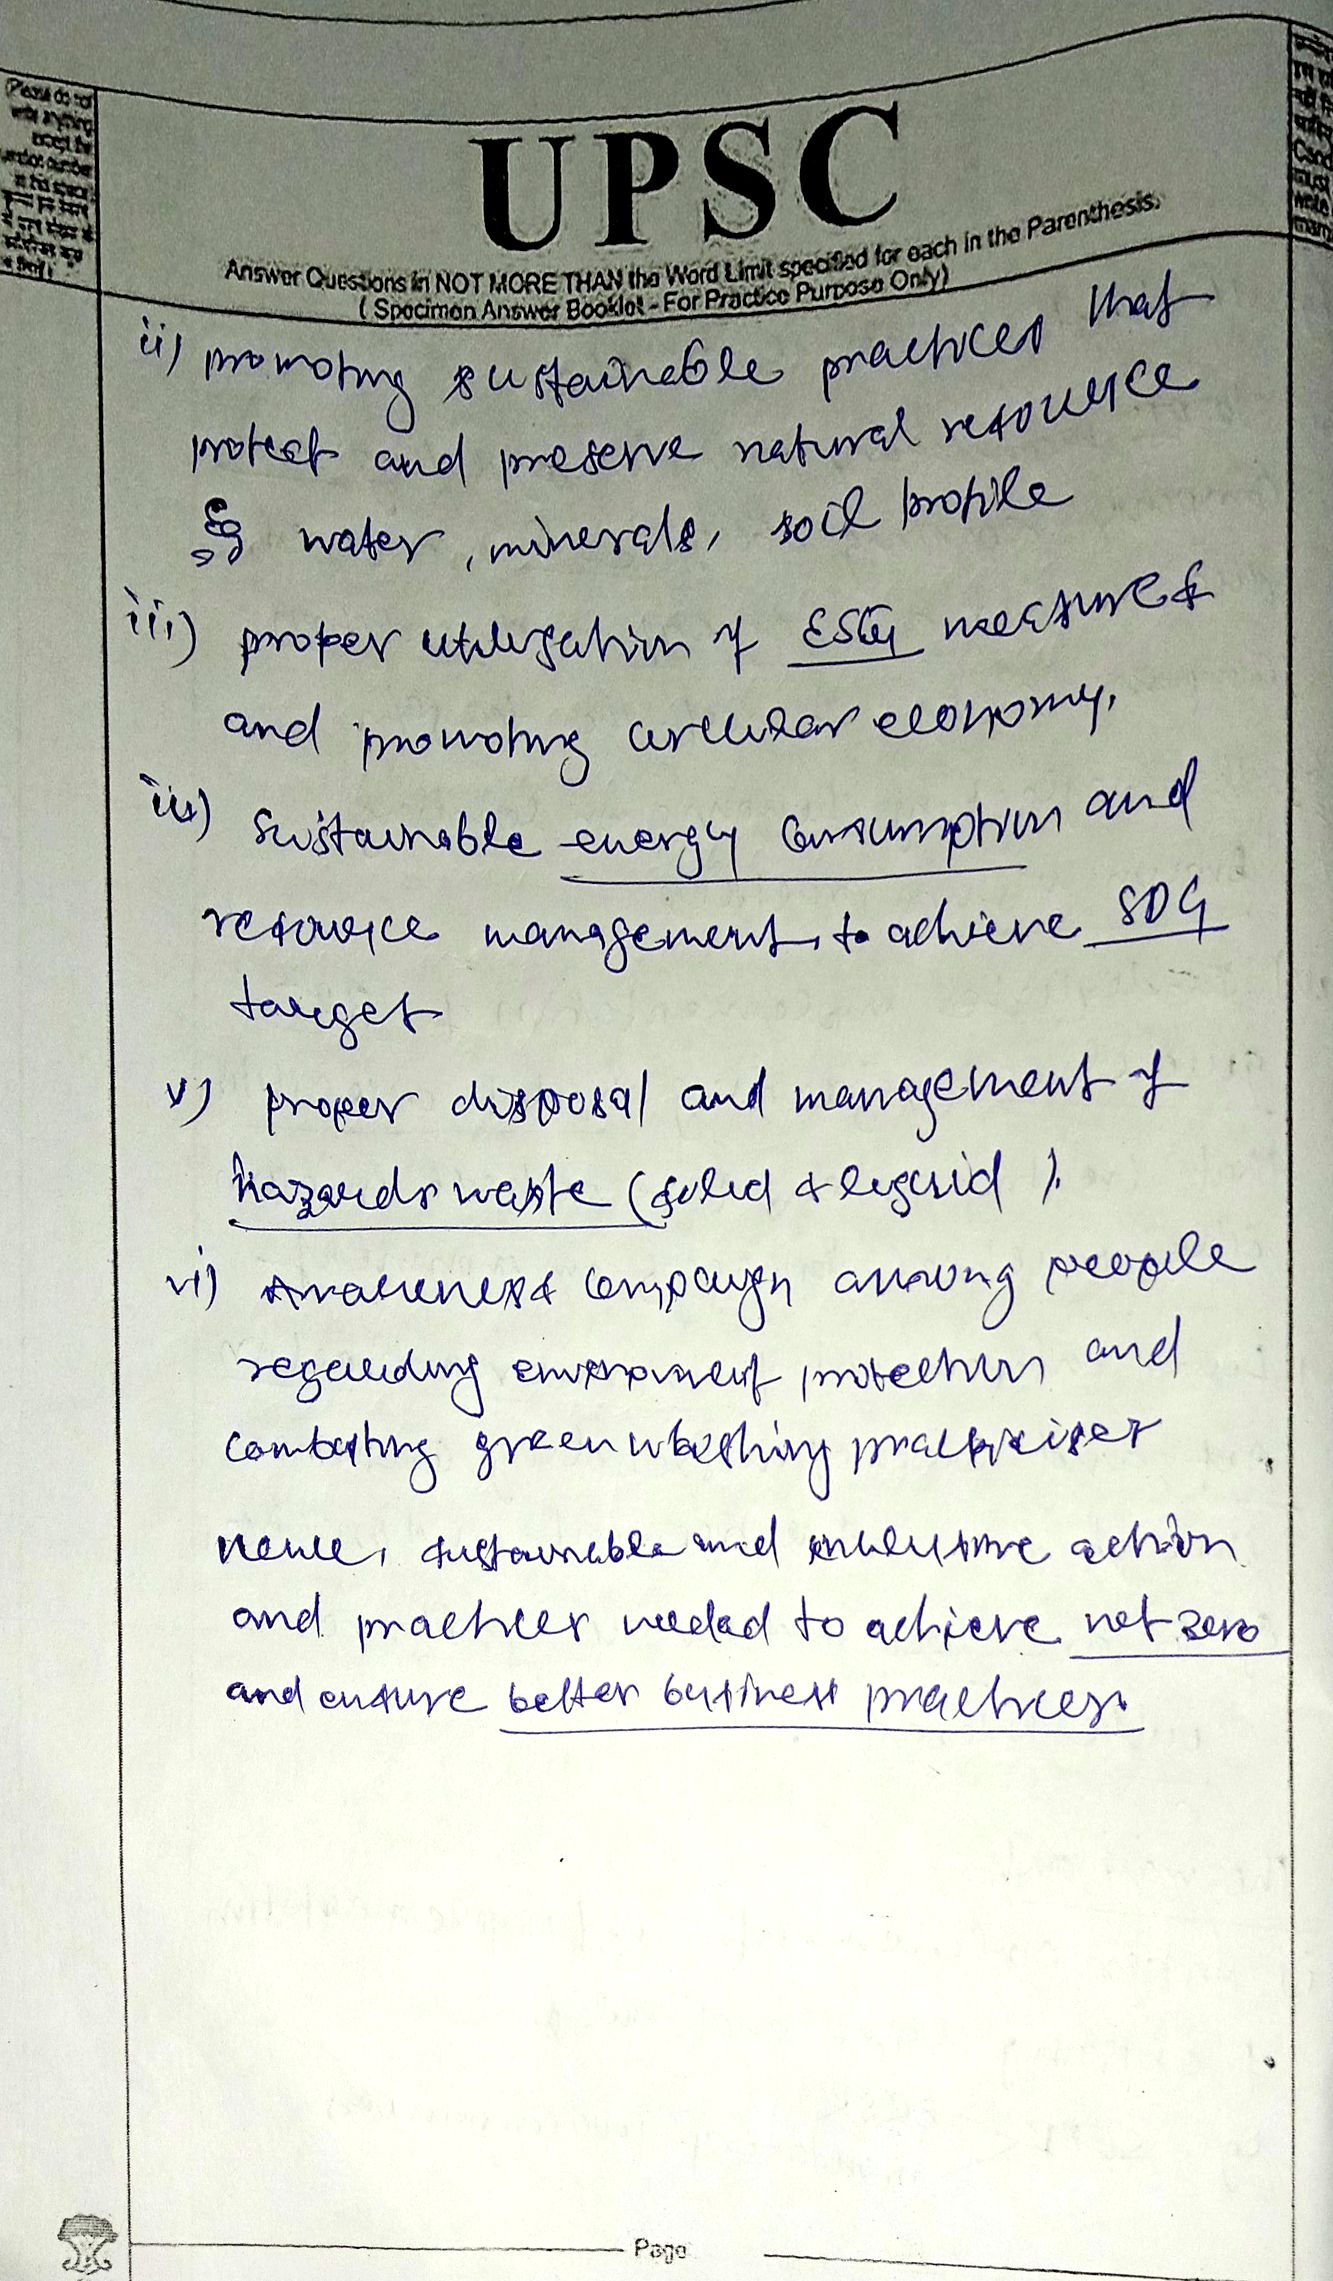 (Please do not
write anything
except the
question number
in this space
UPSC
Answer Questions in NOT MORE THAN the Word Limit specified for each in the Parenthesis.
( Specimen Answer Booklet - For Practice Purpose Only)
ii) promoting sustainable practices that
protect and preserve natural resource
Eg water, minerals, soil profile
iii) proper utilisation of ESG measures
and promoting circular economy.
iv) Sustainable energy consumption and
resource management to achieve SDG
target
v) proper disposal and management of
hazards waste (solid & liquid).
vi) Awareness campaign among people
regarding environment protection and
combating greenwashing
Hence, sustainable and inclusive action
and practices needed to achieve net zero
and ensure better business practices.
Page